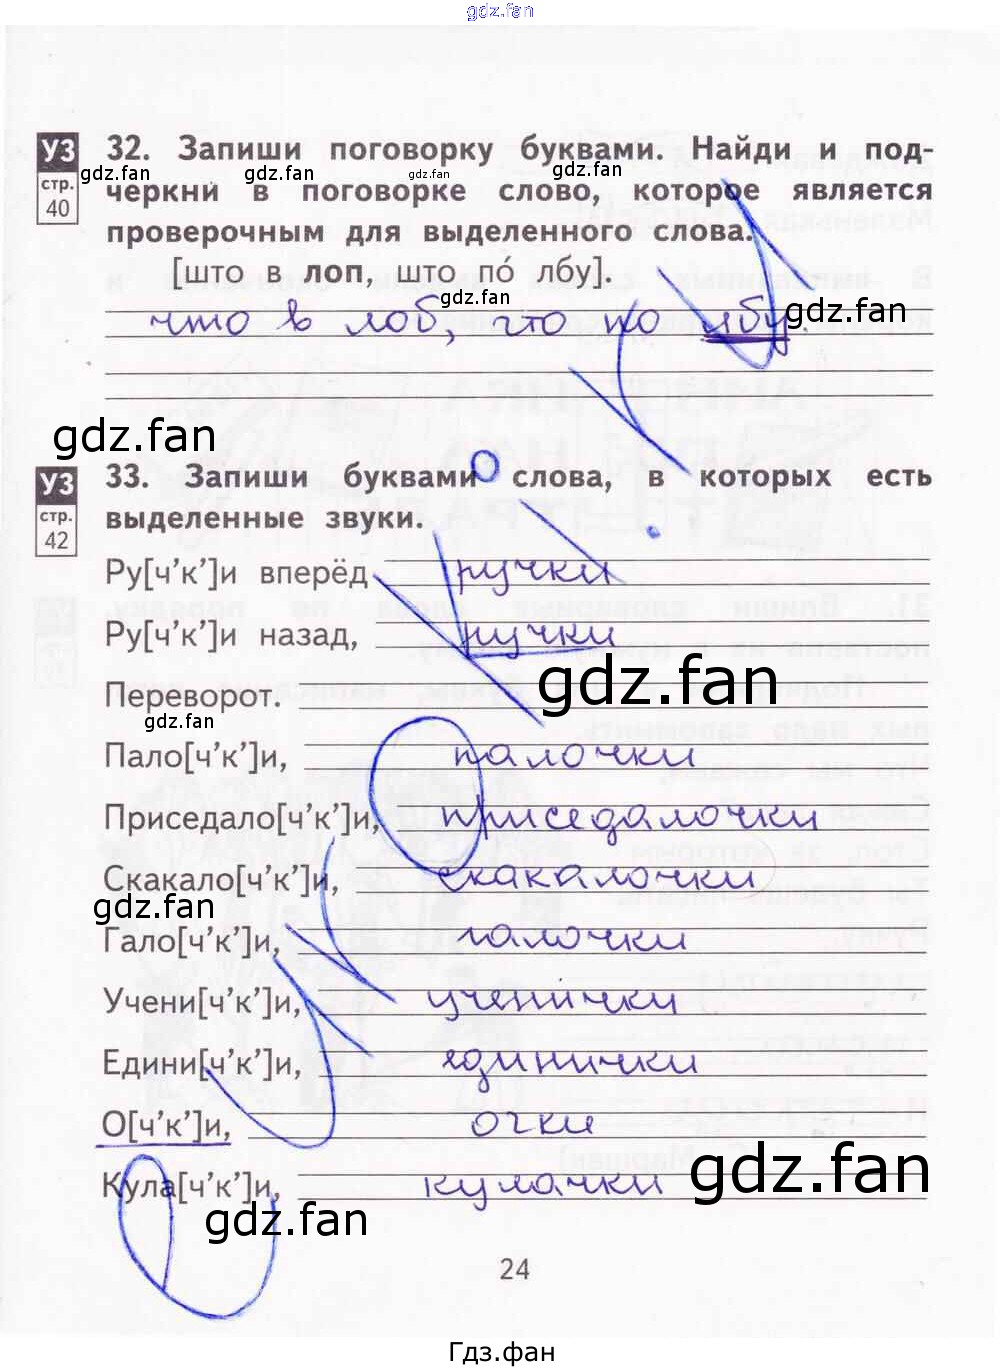 gdz.fan
УЗ
стр.
40
32. Запиши поговорку буквами. Найди и под-
gdz.fan gdz.fan gdz.fan gdz.fan
черкни в поговорке слово, которое является
проверочным для выделенного слова.
[што в лоп, што по́ лбу].
gdz.fan
что в лоб, что по лбу.
gdz.fan
gdz.fan
УЗ
стр.
42
33. Запиши буквами слова, в которых есть
выделенные звуки.
Ру[ч’к’]и вперёд ручки
Ру[ч’к’]и назад, ручки
gdz.fan
Переворот.
gdz.fan
Пало[ч’к’]и, палочки
Приседало[ч’к’]и, приседалочки
Скакало[ч’к’]и, скакалочки
gdz.fan
Гало[ч’к’]и, галочки
Учени[ч’к’]и, ученички
Едини[ч’к’]и, единички
О[ч’к’]и, очки
Кула[ч’к’]и, кулачки
gdz.fan
gdz.fan
24
Гдз.фан